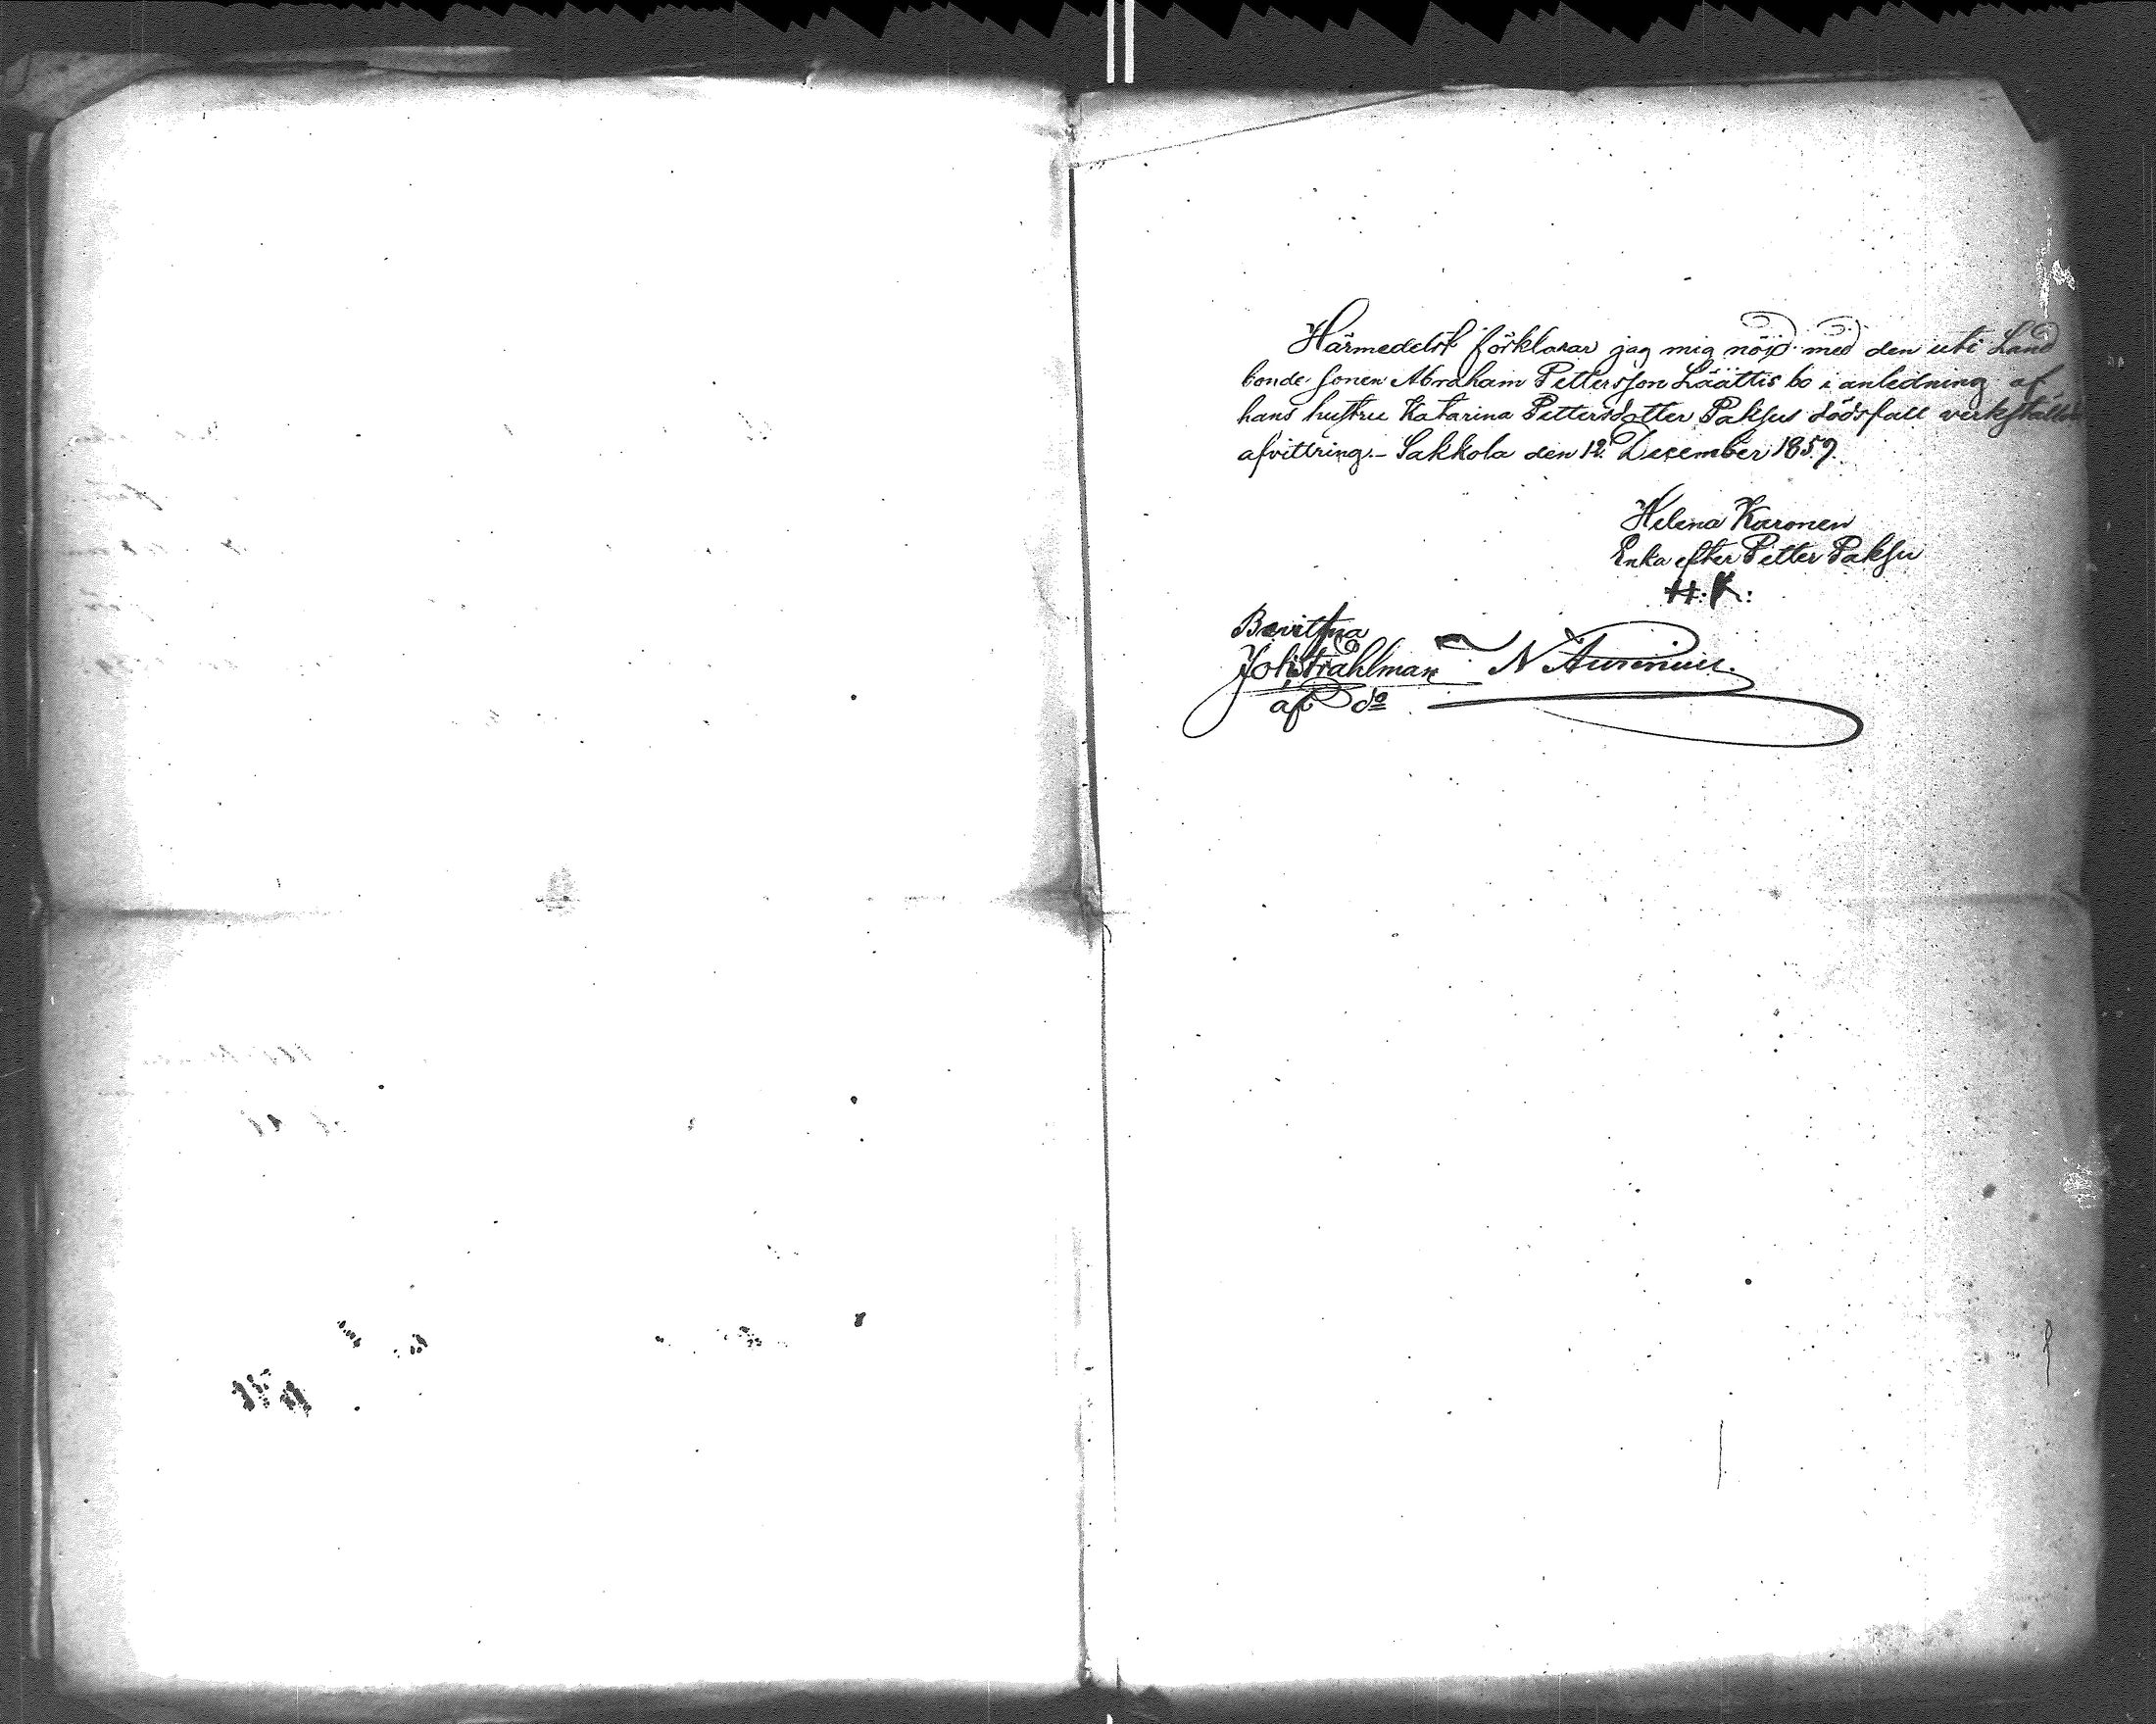 Härmedelst förklarar jag mig nöjd med den uti Land
bonde sonen Abraham Pettersson Läättis bo i anledning af
hans hustru Katarina Pettersdotter Paksus dödsfall verkstälda
afvittring. – Sakkola den 12 December 1859.
Helena Karonen
Enka efter Petter Paksu
H. K.:
Bevittna
Joh Stråhlman N Aurenius.
af do